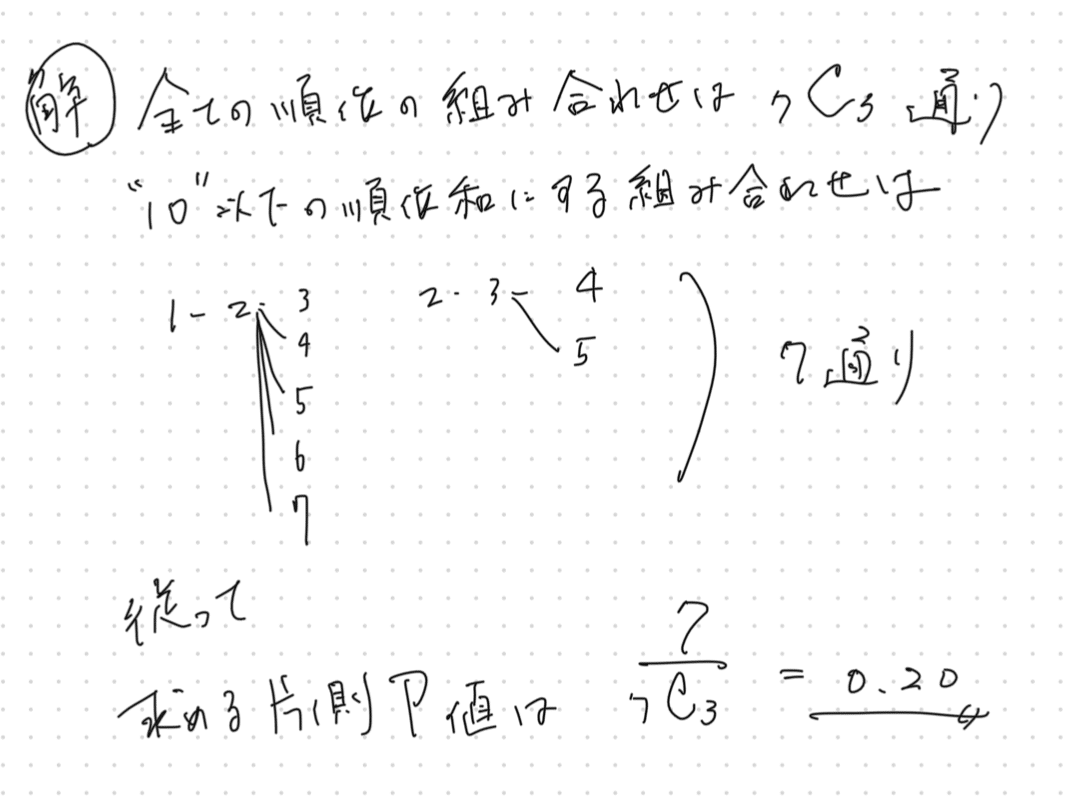 解 全ての順位の組み合わせは 7C3 通り
"10"以下の順位和にする組み合わせは
1 - 2 - 3 2 - 3 - 4
4 5 7通り
5
6
7
従って
求める片側P値は 7/7C3 = 0.20